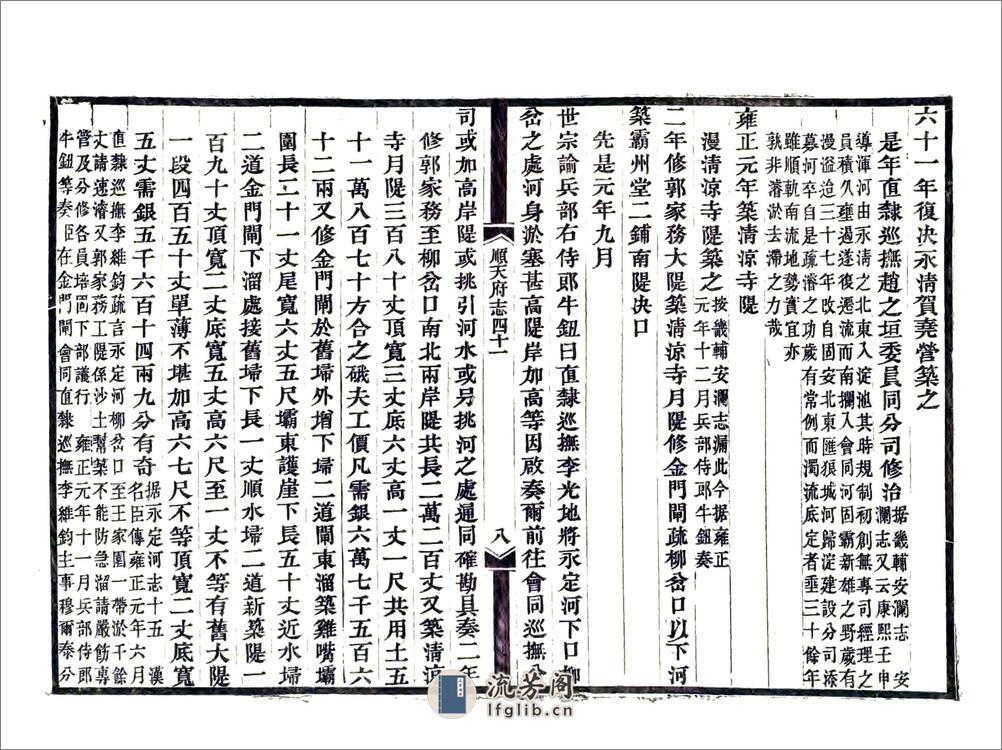 六十一年復決永清賀堯營築之
是年直隸巡撫趙之垣委員同分司修治
据畿輔安瀾志　安
瀾志又云康熙壬申
導渾河由永清之北東入淀池其時規制初創無專司經理之
員積久壅過遂復遷流而南攔入會同河固霸新雄之野歲有
漫溢迨三十七年改自固安北東匯狼城河歸淀建設分司溱
募河卒自是疏濬之功歲有常例而濁流底定者垂三十餘年
雖順軌南流地勢實宜亦
孰非濬淤去滯之力哉
雍正元年築清凉寺隄
漫清凉寺隄築之
按畿輔安瀾志漏此今据雍正
元年十二月兵部侍郎牛鈕奏
二年修郭家務大隄築清凉寺月隄修金門閘疏柳岔口以下河
築霸州堂二鋪南隄決口
先是元年九月
世宗諭兵部右侍郎牛鈕曰直隸巡撫李光地將永定河下口柳
岔之處河身淤塞甚高隄岸加高等因啟奏爾前往會同巡撫分
順天府志四十一
八
司或加高岸隄或挑引河水或另挑河之處通同確勘具奏二年
修郭家務至柳岔口南北兩岸隄共長二萬二百丈又築清凉
寺月隄三百八十丈頂寬三丈底六丈高一丈一尺共用土五
十一萬八百七十方合之硪夫工價凡需銀六萬七千五百六
十二兩又修金門閘於舊埽外增下埽二道閘東溜築雞嘴壩
圍長二十一丈尾寬六丈五尺壩東護崖下長五十丈近水埽
二道金門閘下溜處接舊埽下長一丈順水埽二道新築隄一
百九十丈頂寬二丈底寬五丈高六尺至一丈不等有舊大隄
一段四百五十丈單薄不堪加高六七尺不等頂寬二丈底寬
五丈需銀五千六百十四兩九分有奇
据永定河志十五　漢
名臣傳雍正元年六月
直隸巡撫李維鈞疏言永定河柳岔口至王家圍一帶淤千餘
丈請速濬又郭家務工隄係沙土幫築不能防急溜請嚴飭專
管及分修各員培固下部議行　雍正元年十一月兵部侍郎
牛鈕等奏臣在金門閘會同直隸巡撫李維鈞主事穆爾泰分
流芳阁
lfglib.cn